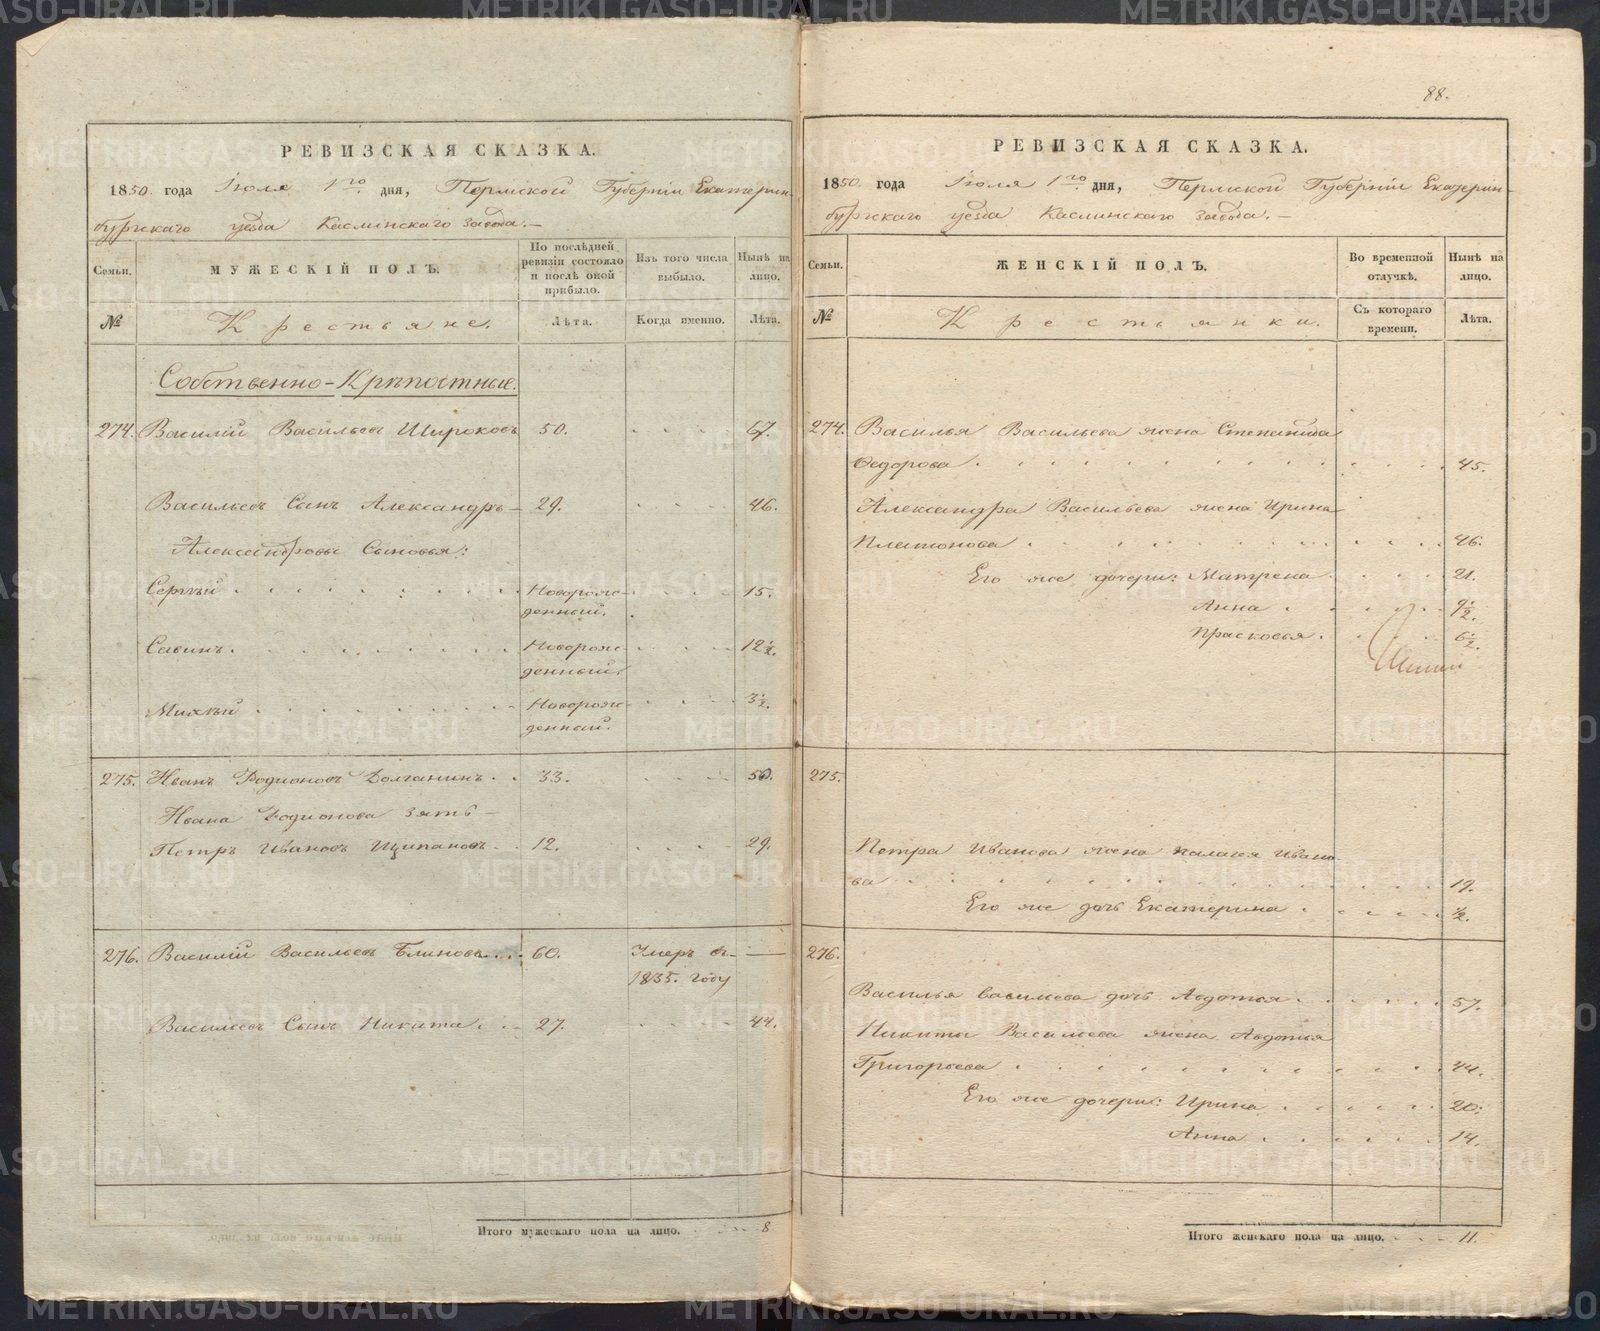 РЕВИЗСКАЯ СКАЗКА.
1850. года Июля 1го дня, Пермской Губернiи Екатерин-
бургскаго уезда Каслинскаго завода.—
Семьи.
МУЖЕСКІЙ ПОЛЪ.
По послѣдней ревизіи состояло и послѣ оной прибыло.
Изъ того числа выбыло.
Нынѣ на лицо.
№
Крестьяне.
Лѣта.
Когда именно.
Лѣта.
Собственно-Крѣпостные.
274. Василій Васильевъ Широковъ 50. 67.
Васильевъ Сынъ Александръ 29. 46.
Александровы Сыновья:
Сергѣй Новорож-
денный. 15.
Савинъ Новорож-
денный. 12½.
Михѣй Новорож-
денный. 3½.
275. Иванъ Родионовъ Долганинъ 33. 50.
Ивана Родионова зять
Петръ Ивановъ Щипановъ 12. 29.
276. Василій Васильевъ Блиновъ 60. Умеръ въ —
1835. году
Васильевъ Сынъ Никита 27. 44.
Итого мужескаго пола на лицо. 8
88.
РЕВИЗСКАЯ СКАЗКА.
1850. года Июля 1го дня, Пермской Губернiи Екатерин-
бургскаго уезда Каслинскаго завода.—
Семьи.
ЖЕНСКІЙ ПОЛЪ.
Во временной отлучкѣ.
Нынѣ на лицо.
№
Крестьянки.
Съ котораго времени.
Лѣта.
274. Василья Васильева жена Степанида
Федорова 45.
Александра Васильева жена Ирина
Платонова 46.
Его же дочери: Матрена 21.
Анна 9½.
Прасковья 6½.
275.
Петра Иванова жена Палагея Ивано-
ва 19.
Его же дочь Екатерина ½.
276.
Василья Васильева дочь Авдотья 57.
Никиты Васильева жена Авдотья
Григорьева 44.
Его же дочери: Ирина 20.
Анна 14.
Итого женскаго пола на лицо. 11.
METRIKI.GASO-URAL.RU